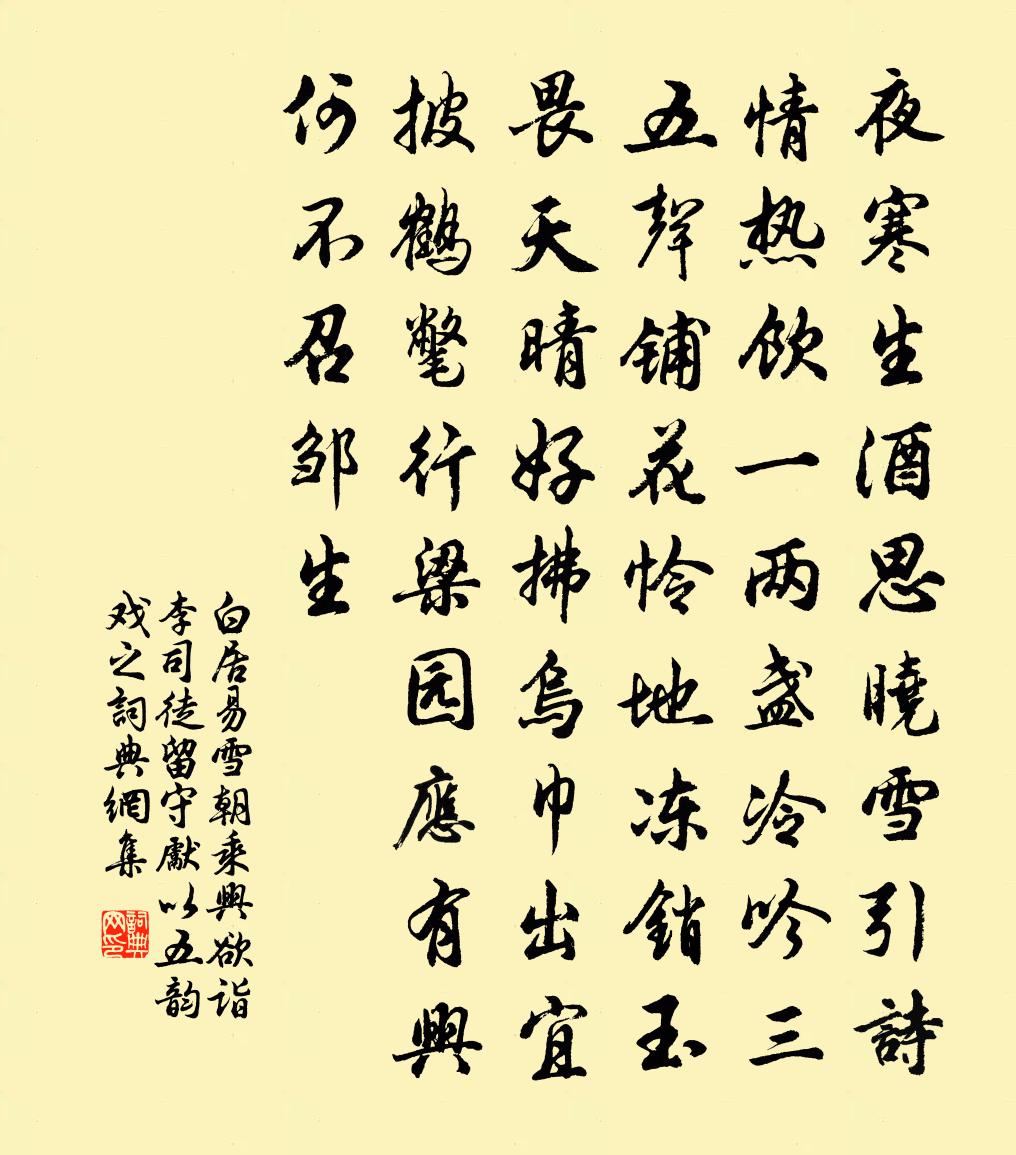 夜寒生酒思曉雪引詩
情热飲一两盏冷吟三
五聲铺花怜地冻銷玉
畏天晴好拂烏巾出宜
披鹤氅行梁园應有興
何不召邹生
白居易雪朝乘興欲诣
李司徒留守獻以五韵
戏之詞典網集
詞典
网印